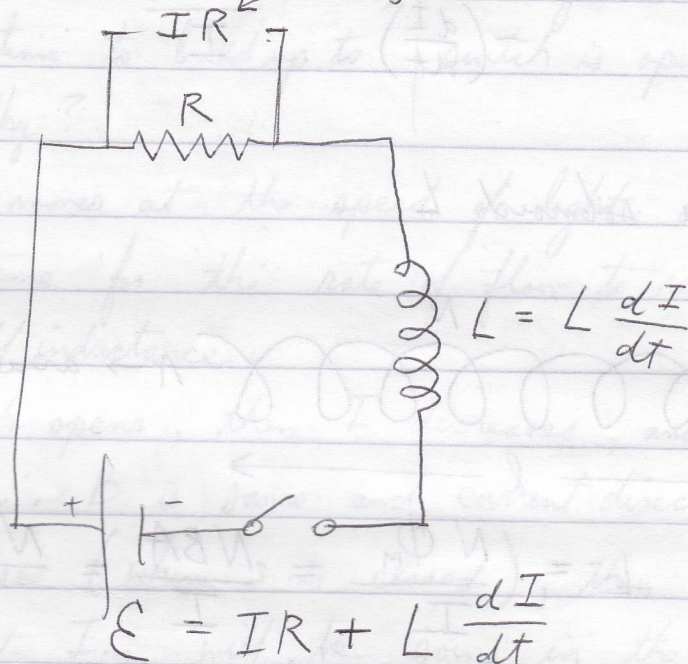 IR
R
L = L dI/dt
+ -
ℰ = IR + L dI/dt